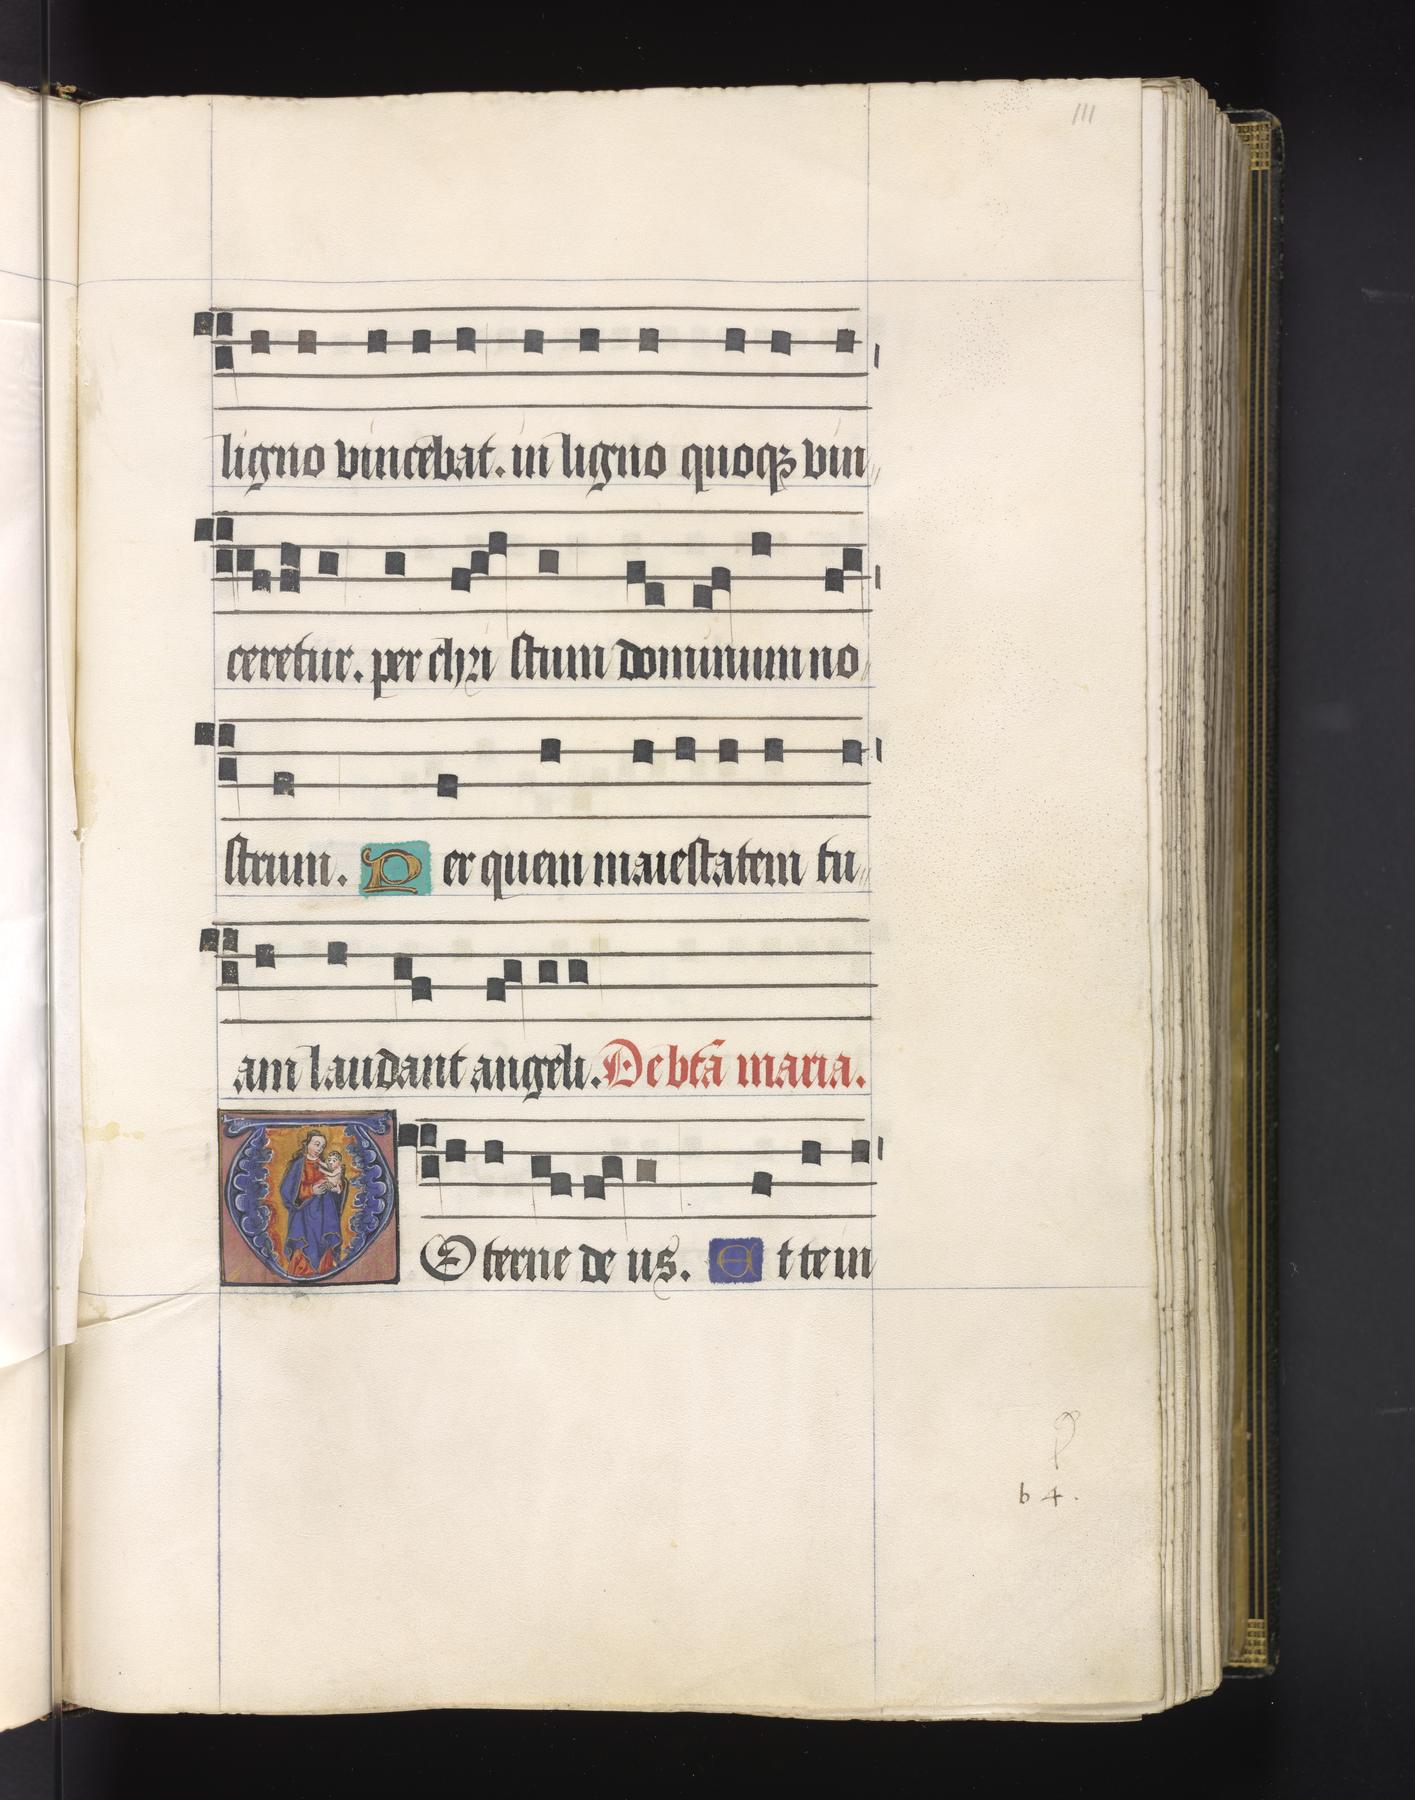 111
ligno vincebat. in ligno quoqꝫ vin
ceretur. per chri stum dominum no
strum. P er quem maiestatem tu
am laudant angeli. De btā maria.
Eterne de us. E t te in
b 4.